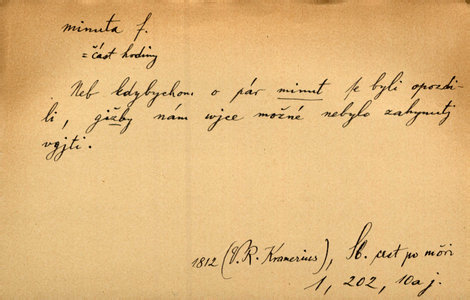 minuta f.
= část hodiny
Neb kdybychom o pár minut se byli opozdi-
li, gižby nám wjce možné nebylo zahynutj
vgjti.
1812 (V. R. Kramerius), Sb. cest po moři
1, 202, 10 a j.